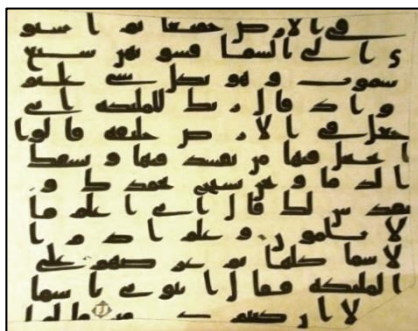 في الارض جميعا ثم استو
ى الى السما فسوهن سبع
سموت وهو بكل شى عليم
واذ قال ربك للملئكه انى
جعل في الارض خليفه قالوا
اتجعل فيها من يفسد فيها ويسفك
الدما ونحن نسبح بحمدك و
نقدس لك قال انى اعلم ما
لا تعلمون وعلم ادم ا
لاسما كلها ثم عرضهم على
الملئكه فقال انبونى باسما
لا ان كنتم قالوا